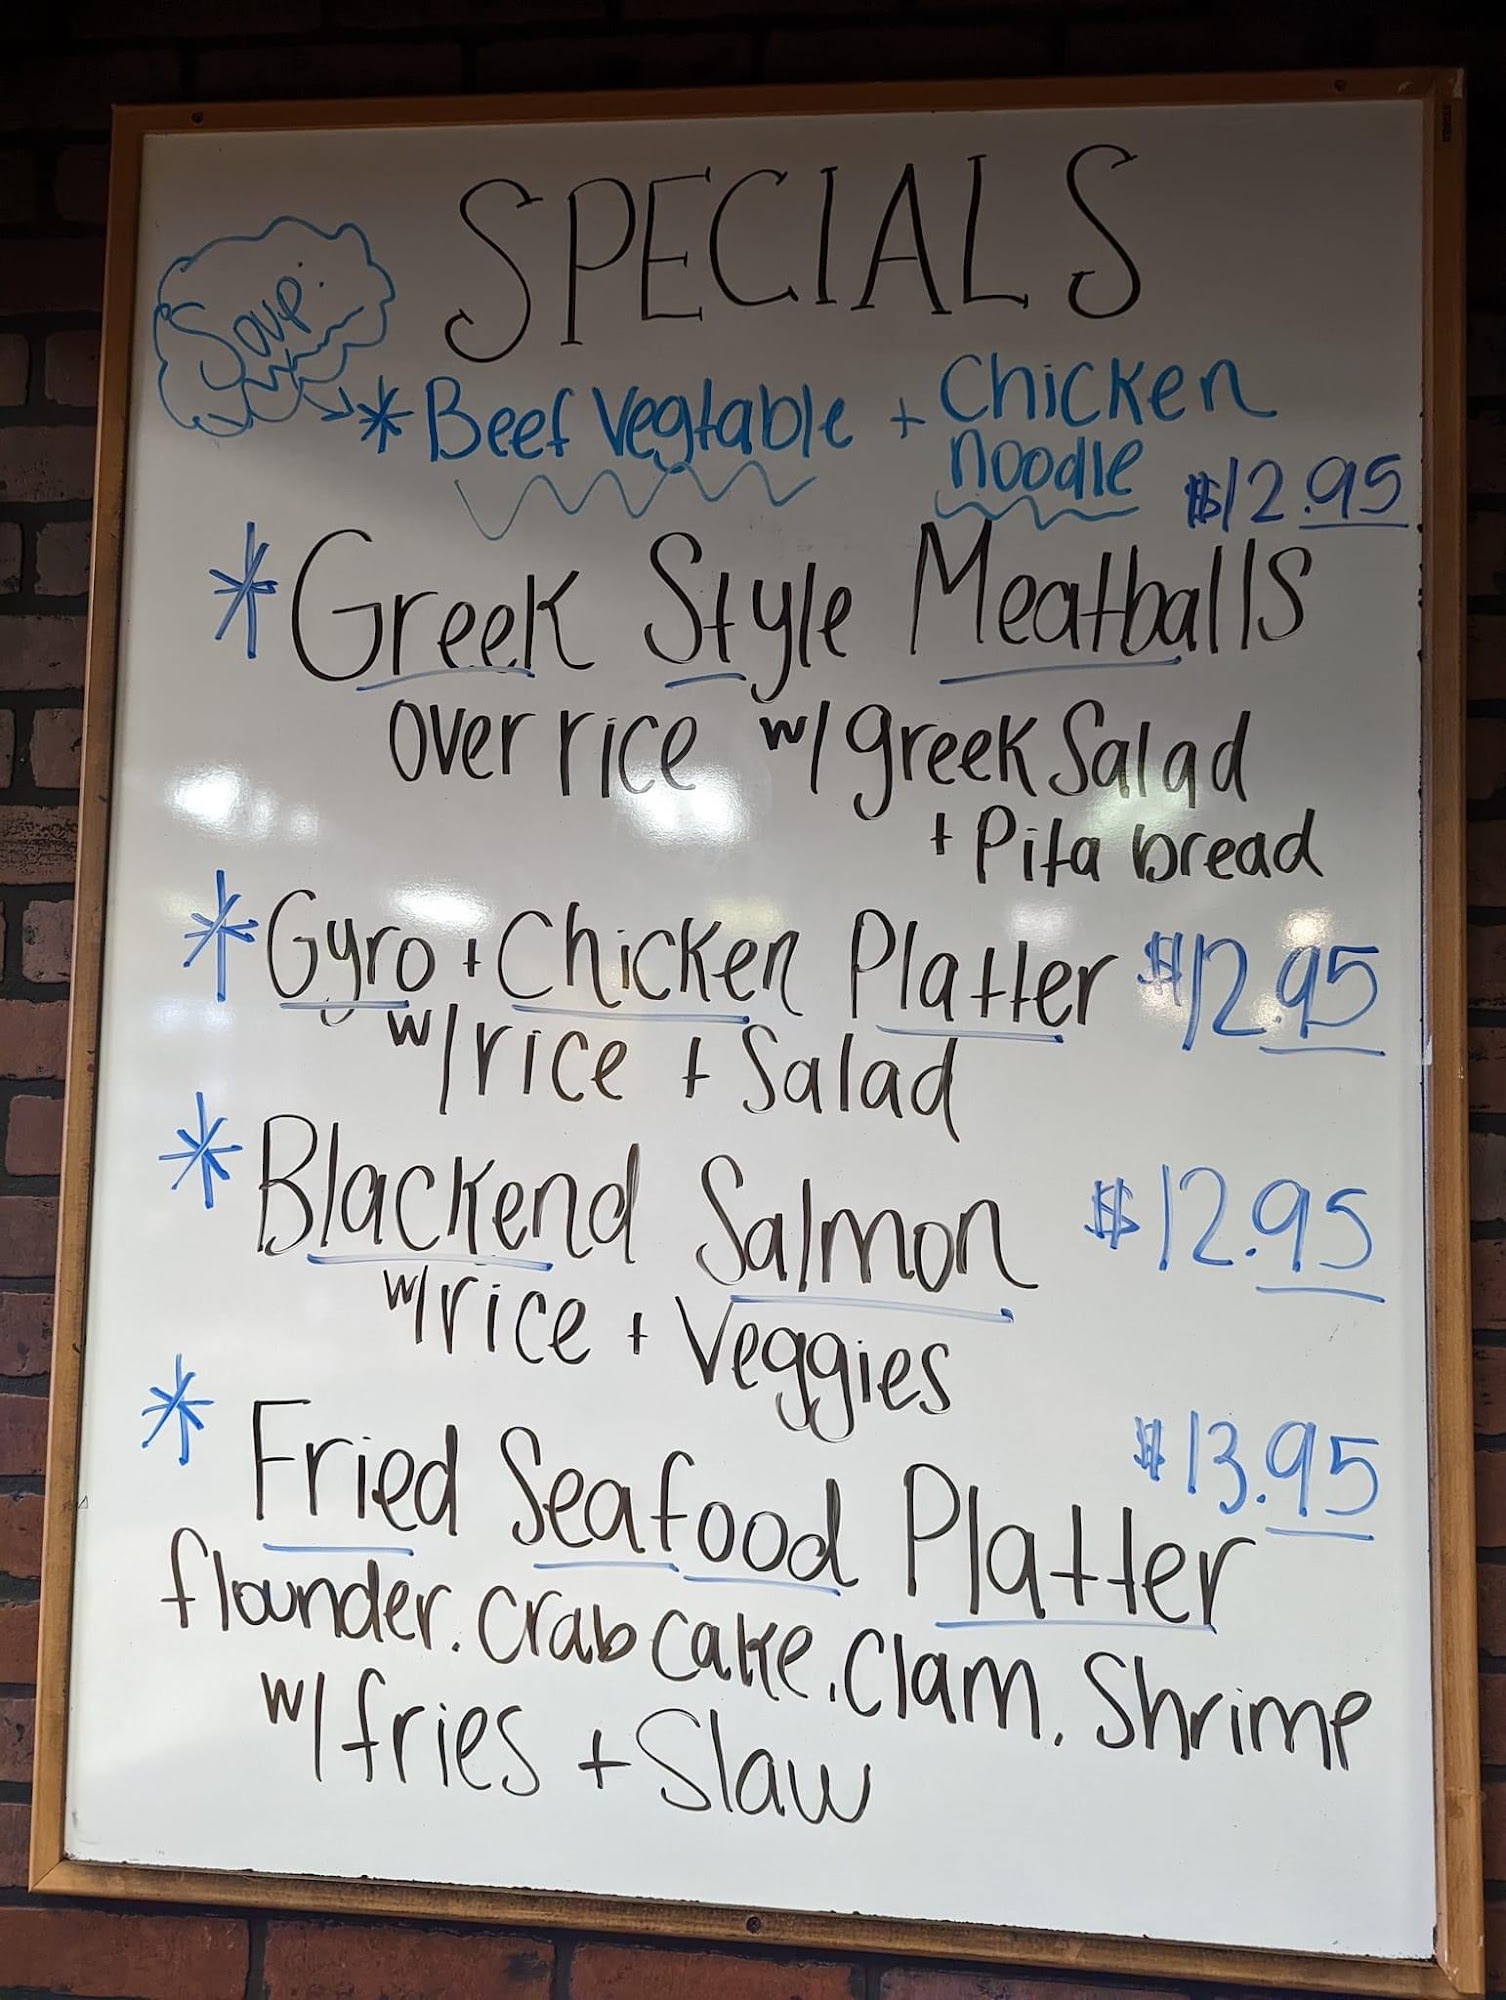 SPECIALS
Soup:
* Beef Vegtable + Chicken
noodle
$12.95
* Greek Style Meatballs
over rice w/ greek Salad
+ Pita bread
* Gyro + Chicken Platter $12.95
w/ rice + Salad
* Blackend Salmon $12.95
w/ rice + Veggies
$13.95
* Fried Seafood Platter
flounder. Crab Cake. Clam. Shrimp
w/ fries + Slaw